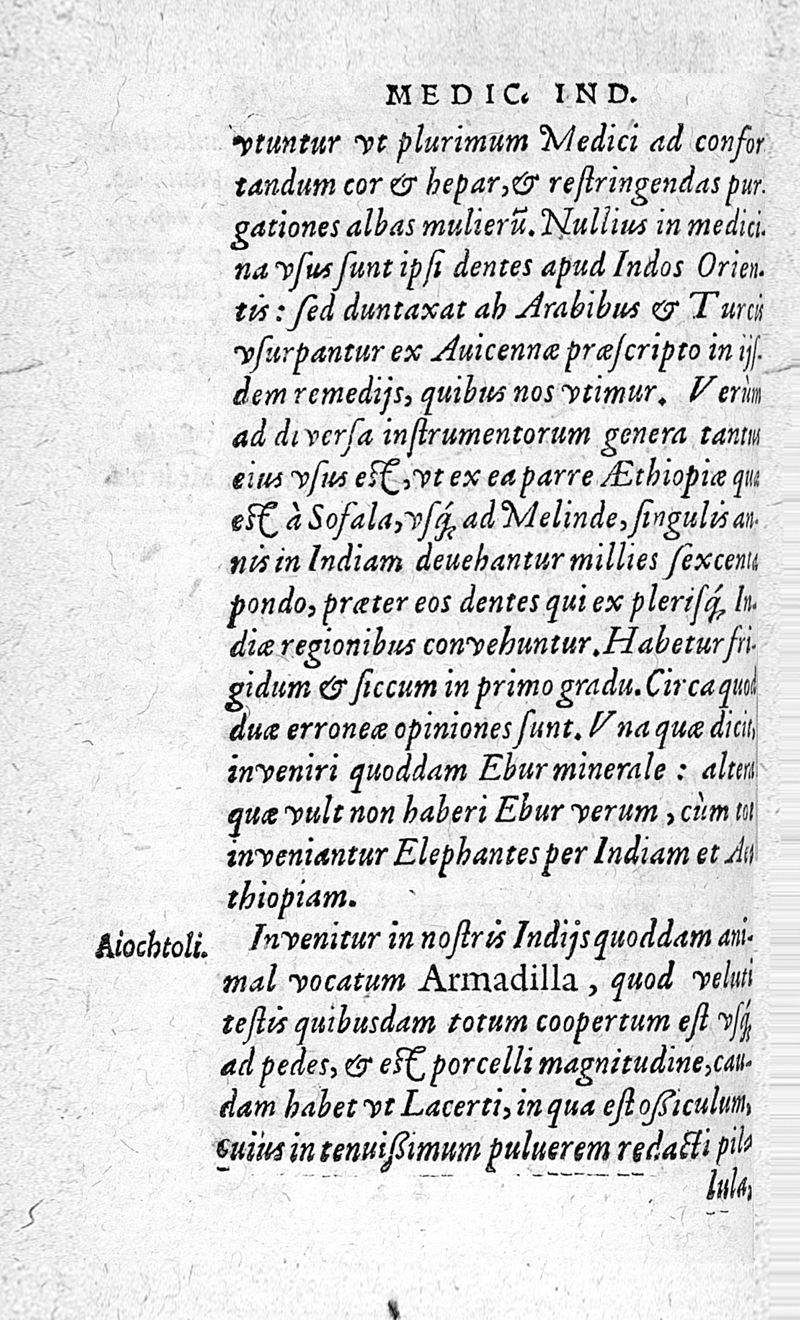 MEDIC. IND.
vtuntur vt plurimum Medici ad confor
tandum cor & hepar, & reſtringendas pur-
gationes albas mulierũ. Nullius in medici-
na vſus ſunt ipſi dentes apud Indos Orien-
tis: ſed duntaxat ab Arabibus & Turcis
vſurpantur ex Auicennæ præſcripto in ijſ-
dem remedijs, quibus nos vtimur. Verùm
ad diverſa inſtrumentorum genera tantus
eius vſus eſt, vt ex ea parre Æthiopiæ quæ
eſt à Sofala, vſq́; ad Melinde, ſingulis an-
nis in Indiam deuehantur millies ſexcenta
pondo, præter eos dentes qui ex pleriſq́; In-
diæ regionibus convehuntur. Habetur fri-
gidum & ſiccum in primo gradu. Circa quod
duæ erroneæ opiniones ſunt. Vna quæ dicit,
inveniri quoddam Ebur minerale: altera
quæ vult non haberi Ebur verum, cùm tot
inveniantur Elephantes per Indiam et Ae-
thiopiam.
Aiochtoli.
Invenitur in noſtris Indijs quoddam ani-
mal vocatum Armadilla, quod veluti
teſtis quibusdam totum coopertum eſt vſq́;
ad pedes, & eſt porcelli magnitudine, cau-
dam habet vt Lacerti, in qua eſt oßiculum,
cuiius in tenuißimum puluerem redacti pila
lula,